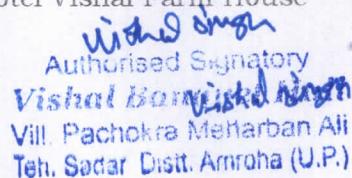 Hotel Vishal Farm House
Vishal Singh
Authorised Signatory
Vishal Vishal Singh
Vill. Pachokra Meharban Ali
Teh. Sadar Distt. Amroha (U.P.)